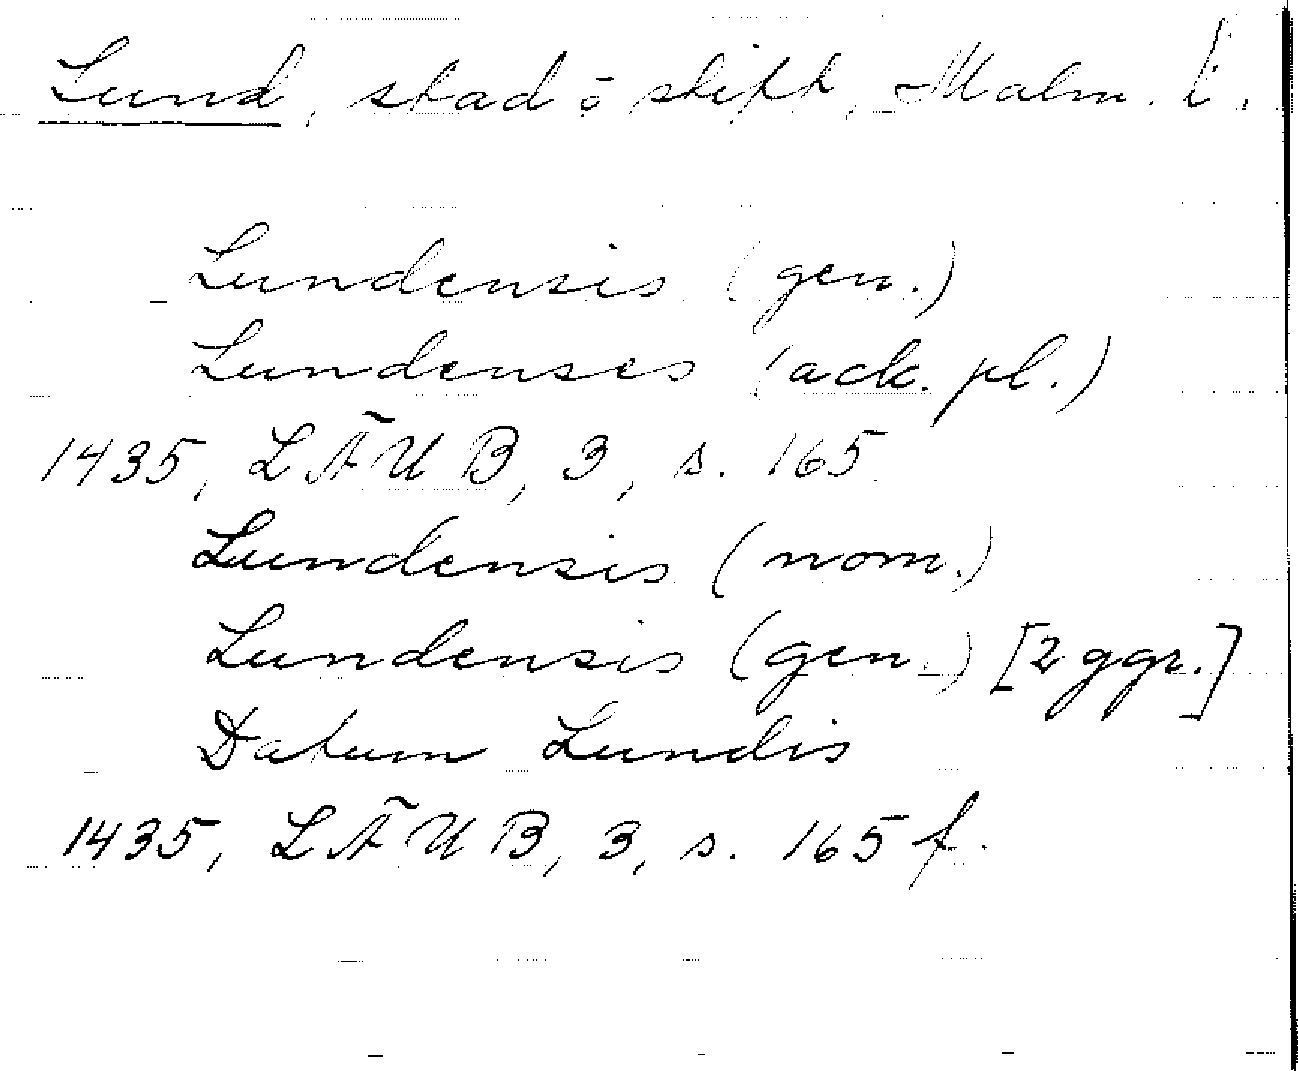 Lund, stad o stift, Malm. l.
Lundensis (gen.)
Lundenses (ack. pl.)
1435, LÄUB, 3, s. 165
Lundensis (nom.)
Lundensis (gen.) [2 ggr.]
Datum Lundis
1435, LÄUB, 3, s. 165 f.